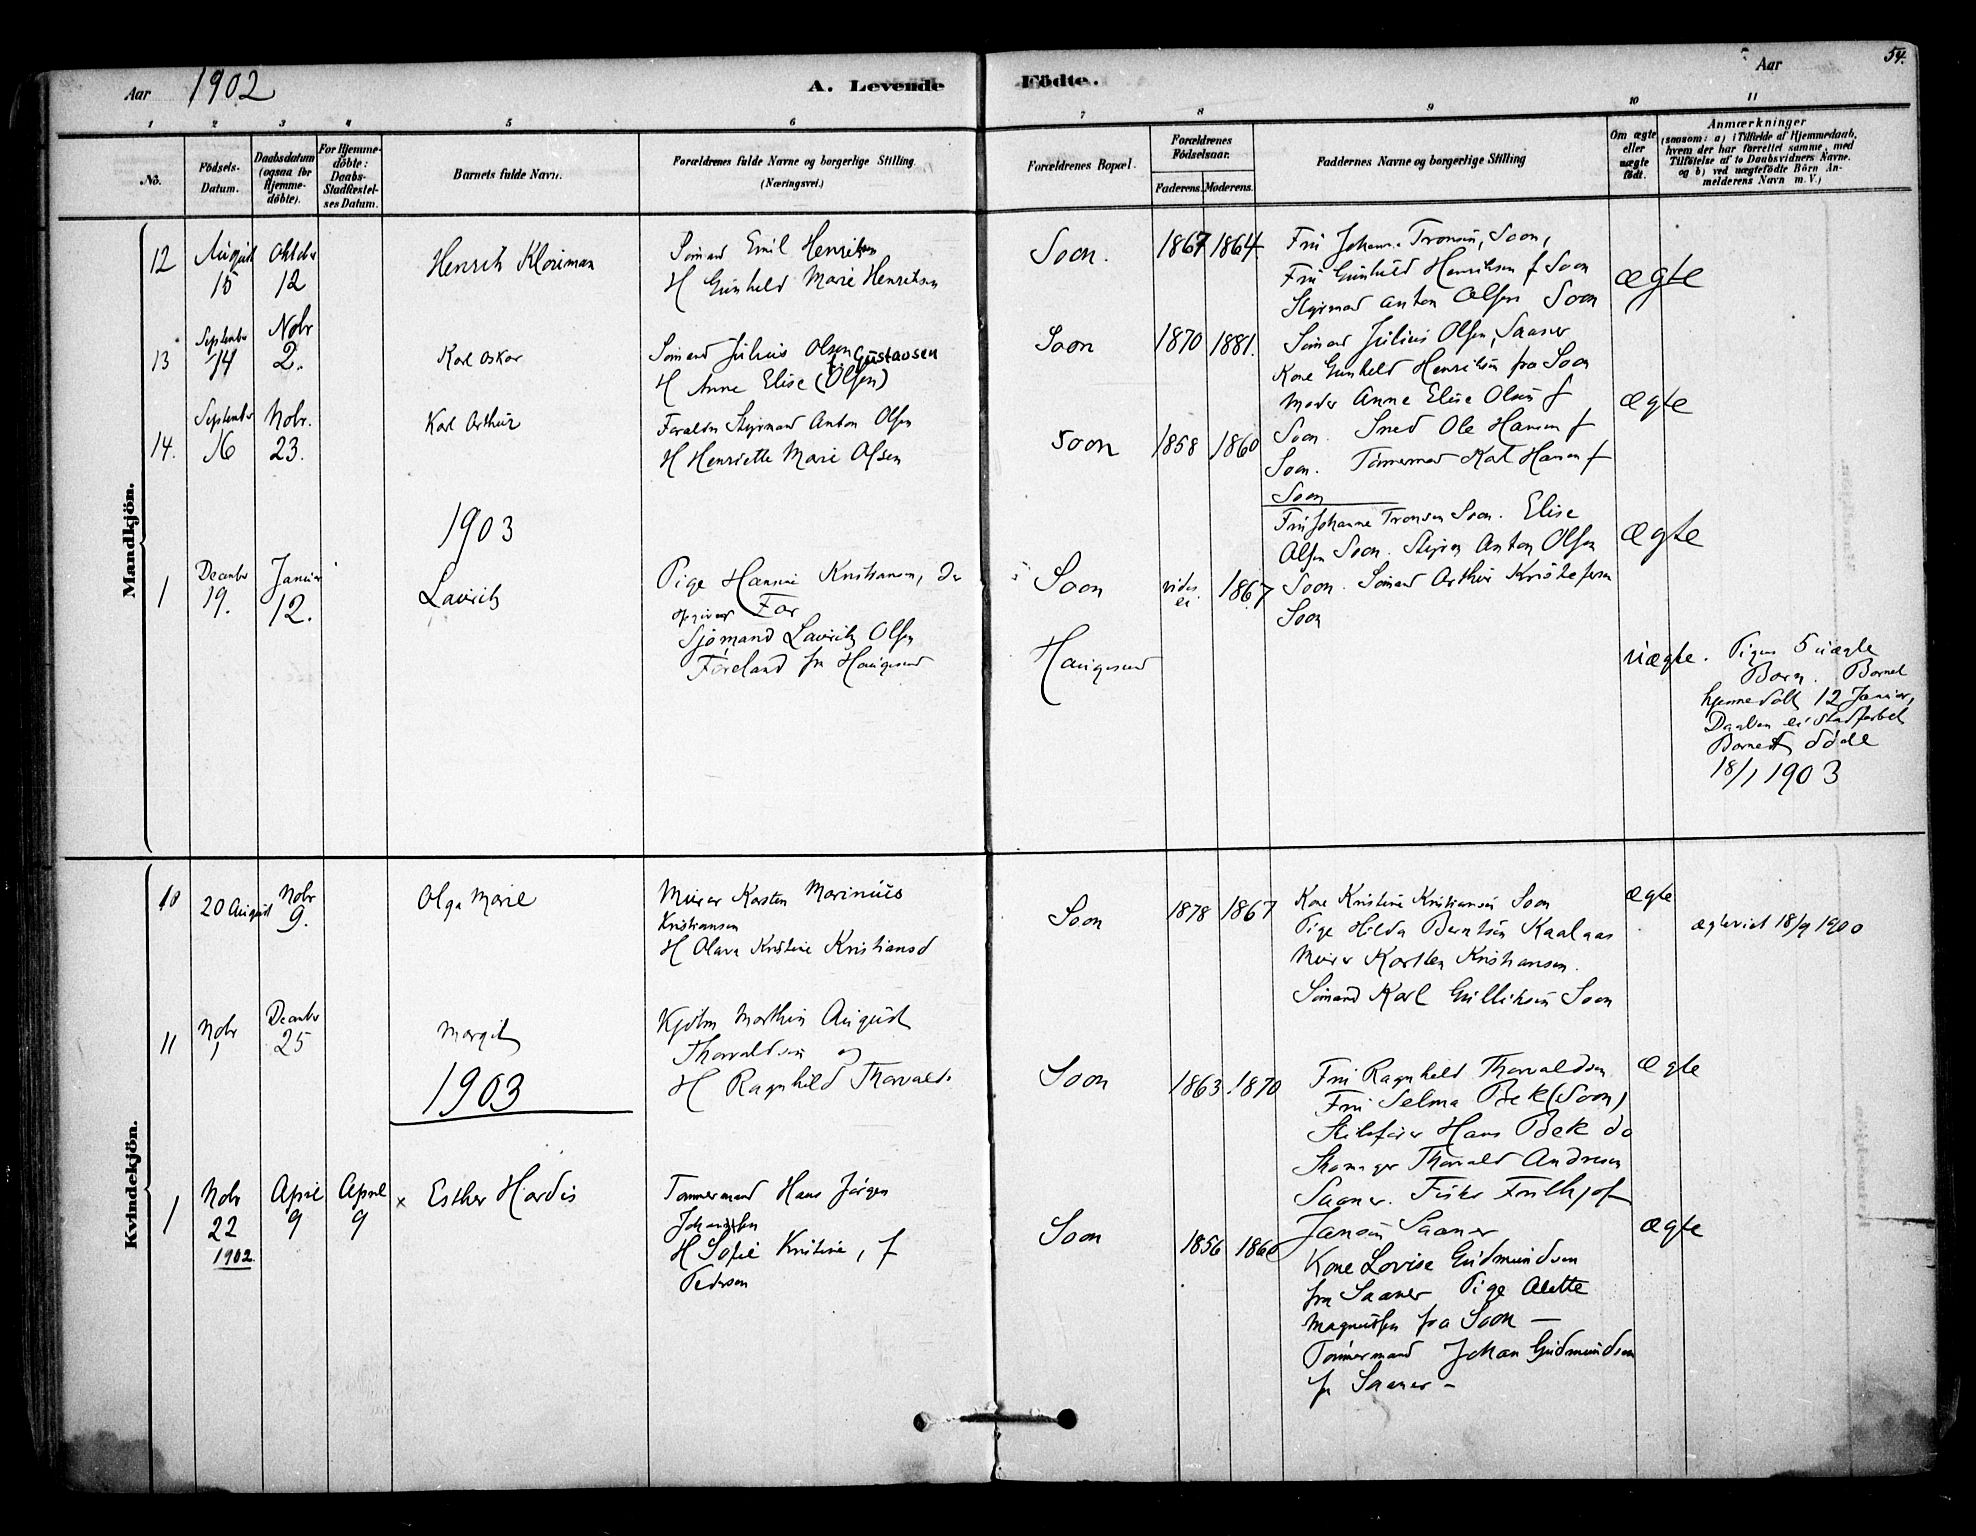 Aar 1902
A. Levende Födte.
Aar
54.
1 2 3 4 5 6 7 8 9 10 11
No.
Födsels-
Datum.
Daabsdatum
(ogsaa for
Hjemme-
döbte).
For Hjemme-
döbte:
Daabs-
Stadfæstel-
ses Datum.
Barnets fulde Navn.
Forældrenes fulde Navne og borgerlige Stilling
(Næringsvei.)
Forældrenes Bopæl.
Forældrenes
Födselsaar.
Faderens. Moderens.
Faddernes Navne og borgerlige Stilling
Om ægte
eller
uægte
født.
Anmærkninger
(saasom: a) i Tilfælde af Hjemmedaab,
hvem der har forrettet samme, med
Tilföielse af to Daabsvidners Navne.
og b) ved uægtefödte Börn An-
melderens Navn m. V.)
Mandkjön.
12
August
15
Oktober
12
Henrik
Sömand Emil Henriksen
H Gunhild Marie Henriksen
Soon.
1867 1864
Fru Johanne Tronsen, Soon,
Fru Gunhild Henriksen f Soon
Styrmand Anton Olsen Soon
ægte
13
September
14
Nobr
2.
Karl Oskar
Sömand Julius Olsen
f. Gustavsen
H Anne Elise (Olsen)
Soon
1870 1881.
Sömand Julius Olsen, Saaner
Kone Gunhild Henriksen fra Soon
Moder Anne Elise Olsen f
Soon. Smed Ole Hansen f
ægte
14.
September
16
Nobr.
23.
Karl Arthur
Foraldre Styrmand Anton Olsen
H Henriette Marie Olsen
Soon
1858 1860
Soon. Tömermand Karl Hansen f
Soon
Fru Johanne Tronsen Soon. Elise
Olsen Soon. Styrm Anton Olsen
Soon. Sömand Arthur Kristofersen
Soon
ægte
1903
1
December
19.
Januar
12.
Lauritz
Pige Hanna Kristiansen, der
opgiver Far
Sjömand Lauritz Olsen
Föreland fra Haugesund
Soon
Haugesund
vides
ei
1867
uægte.
Pigens 5 uægte
Barn. Barnet
hjemmedöbt 12 Januar,
Daaben ei stadfæstet
Barnet döde
18/1 1903
Kvindekjön.
10
20 August
Nobr
9.
Olga Marie
Murer Karsten Marinius
Kristiansen
H Olava Kristine Kristiansd
Soon
1878 1867
Kone Kristine Kristiansen Soon
Pige Hilda Berntsen Kaalaas
Murer Karsten Kristiansen.
Sömand Karl Gulliksen Soon
ægte
ægteviet 18/9 1900
11
Nobr
1
December
25
Margit
Kjöbm Marthin August
Thorvaldsen og
H Ragnhild Thorvalds.
Soon
1863 1870
Fru Ragnhild Thorvaldsen
Fru Selma Bek (Soon)
Hans Bek do
Skomager Thorvald Andresen
Saaner. Fisker Frithjof
Jansen Saaner
ægte
1903
1
Nobr
22
1902
April
9
April
9
x Esther Hardis
Tømmermand Hans Jörgen
Johansen
H Sofie Kristine, f
Pedersen
Soon
1856 1860
Kone Lovise Gudmundsen
fra Saaner Pige Alette
Magnussen fra Soon —
Tömmermand Johan Gudmundsen
fr Saaner —
ægte